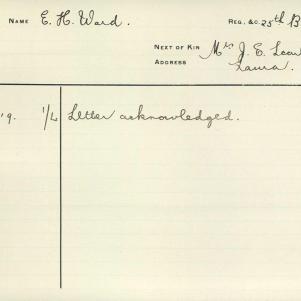 NAME E. H. Ward. REG. &C. 25th B
NEXT OF KIN Mrs J. E.
ADDRESS Laura.
19. 1/L Letter acknowledged.